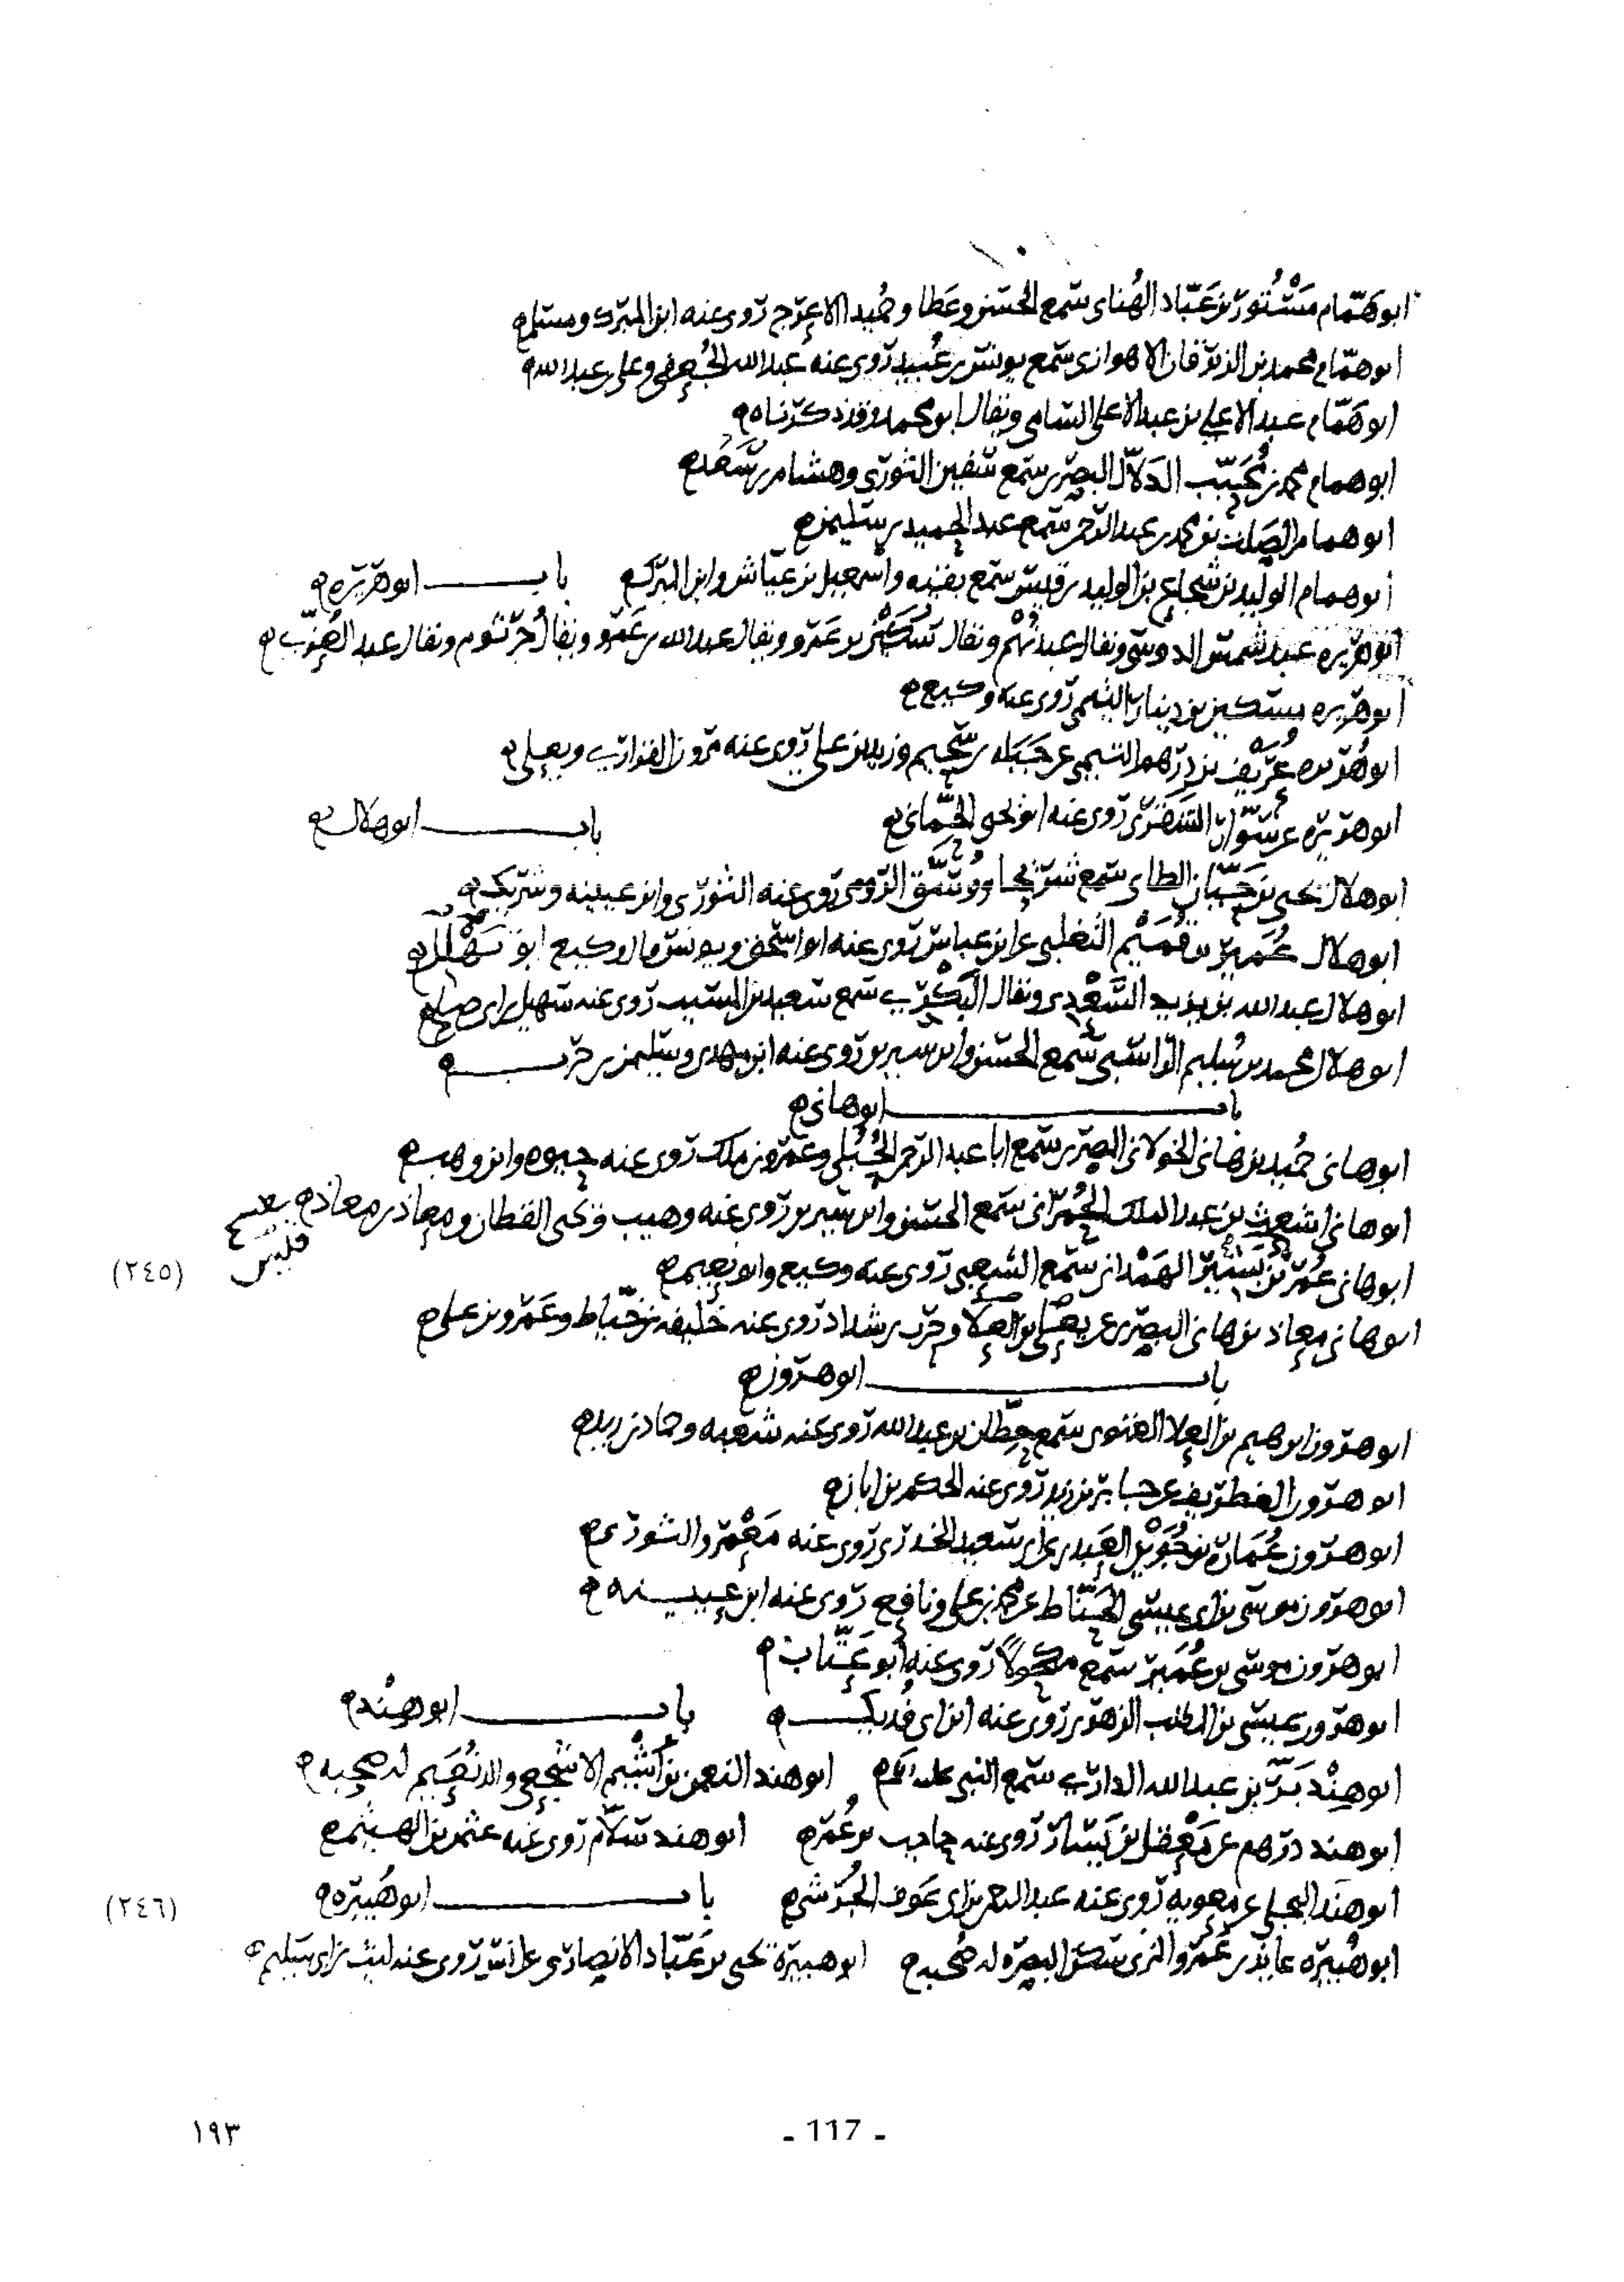 ابو همّام مستور بن عبّاد الهُنائى سمع الحسن وعطا وحميد الاعرج روى عنه ابن المبرك ومسلم
ابو همّام محمد بن الزبرقان الاهوازى سمع يونس بن عُبيد روى عنه عبد الله الجُعفى وعلى بن عبد الله
ابو همّام عبد الاعلى بن عبد الاعلى السامى ويقال ابو محمد وقد ذكرناه
ابو همام محمد بن مُحَبّب الدلّال البصرى سمع سفين الثورى وهشام بن سعد
ابو همام الصلت بن محمد بن عبد الرحمن سمع عبد الحميد بن سليمن
ابو همام الوليد بن شجاع بن الوليد بن قيس سمع بقيه واسمعيل بن عيّاش وابن المبرك باب ابو هريره
ابو هريره عبد شمس الدوسى ويقال عبد نُهْم ويقال سُكَين بن عمرو ويقال عبد الله بن عمرو ويقال جرثوم ويقال عبد العُزّى
ابو هريره مسكين بن دينار التيمى روى عنه وكيع
ابو هُريره عُرَيف بن درهم التيمى عن جَبَله بن سُحيم وزيد بن على روى عنه مرون الفزارى ويعلى
ابو هريره عن سوّار الشَقَرى روى عنه ابو يحيى الحِمّانى باب ابو هلال
ابو هلال يحيى بن حيّان الطاى سمع شريحا ووُسَّق الرومى روى عنه الثورى وابن عيينه وشريك
ابو هلال عُمير بن قُمَيْم التغلبى عن ابن عباس روى عنه ابو اسحق ويونس قال وكيع ابو تِهْلل
ابو هلال عبد الله بن يزيد السَعْدى ويقال البَكْرى سمع سعيد بن المسيب روى عنه سهيل بن ابى صلح
ابو هلال محمد بن سُليم الراسبى سمع الحسن وابن سيرين روى عنه ابن مهدى وسليمن بن حرب
باب ابو هانى
ابو هانى حُميد بن هانى الخولانى المصرى سمع ابا عبد الرحمن الحُبُلى وعمرو بن ملك روى عنه حيوه وابن وهب
ابو هانى اشعث بن عبد الملك الحُمرانى سمع الحسن وابن سيرين روى عنه وهيب ويحيى القطان ومعاذ بن معاذ
ابو هانى عُمر بن بَشير الهَمْدانى سمع الشعبى روى عنه وكيع وابو نعيم
(٢٤٥)
ابو هانى معاذ بن هانى البصرى عن يحيى بن العلا وحرب بن شداد روى عنه خليفه بن خيّاط وعَمرو بن على
باب ابو هرون
ابو هرون ابرهيم بن العلا الغنوى سمع حِطّان بن عبد الله روى عنه شعبه وحماد بن زيد
ابو هرون الغطريف عن جابر بن زيد روى عنه الحكم بن ابان
ابو هرون عُمارة بن جُوَيْن العَبدى عن ابى سعيد الخدرى روى عنه مَعْمر والثورى
ابو هرون موسى بن ابى عيسى الحنّاط عن محمد بن على ونافع روى عنه ابن عيينه
ابو هرون موسى بن عُمَير سمع مكحولاً روى عنه ابو عَتّاب
ابو هرون عيسى بن المطلب الزهرى روى عنه ابن ابى فُديك باب ابو هِنْد
ابو هِنْد بَرّ بن عبد الله الدارى سمع النبى عليه السلم ابو هند النعمن بن اَشْيم الاشجعى والد نُعَيم له صحبه
ابو هند درهم عن مَعْقل بن يَسار روى عنه حاجب بن عُمر ابو هند سلّام روى عنه عثمن بن الهيثم
ابو هند البجلى عن معويه روى عنه عبد الرحمن بن ابى عوف الجُرشى باب ابو هُبيره
(٢٤٦)
ابو هُبيره عايذ بن عَمْرو المزنى سكن البصره له صُحبه ابو هبيرة يحيى بن عَبّاد الانصارى عن انس روى عنه ليث بن ابى سليم
- 117 -
١٩٣